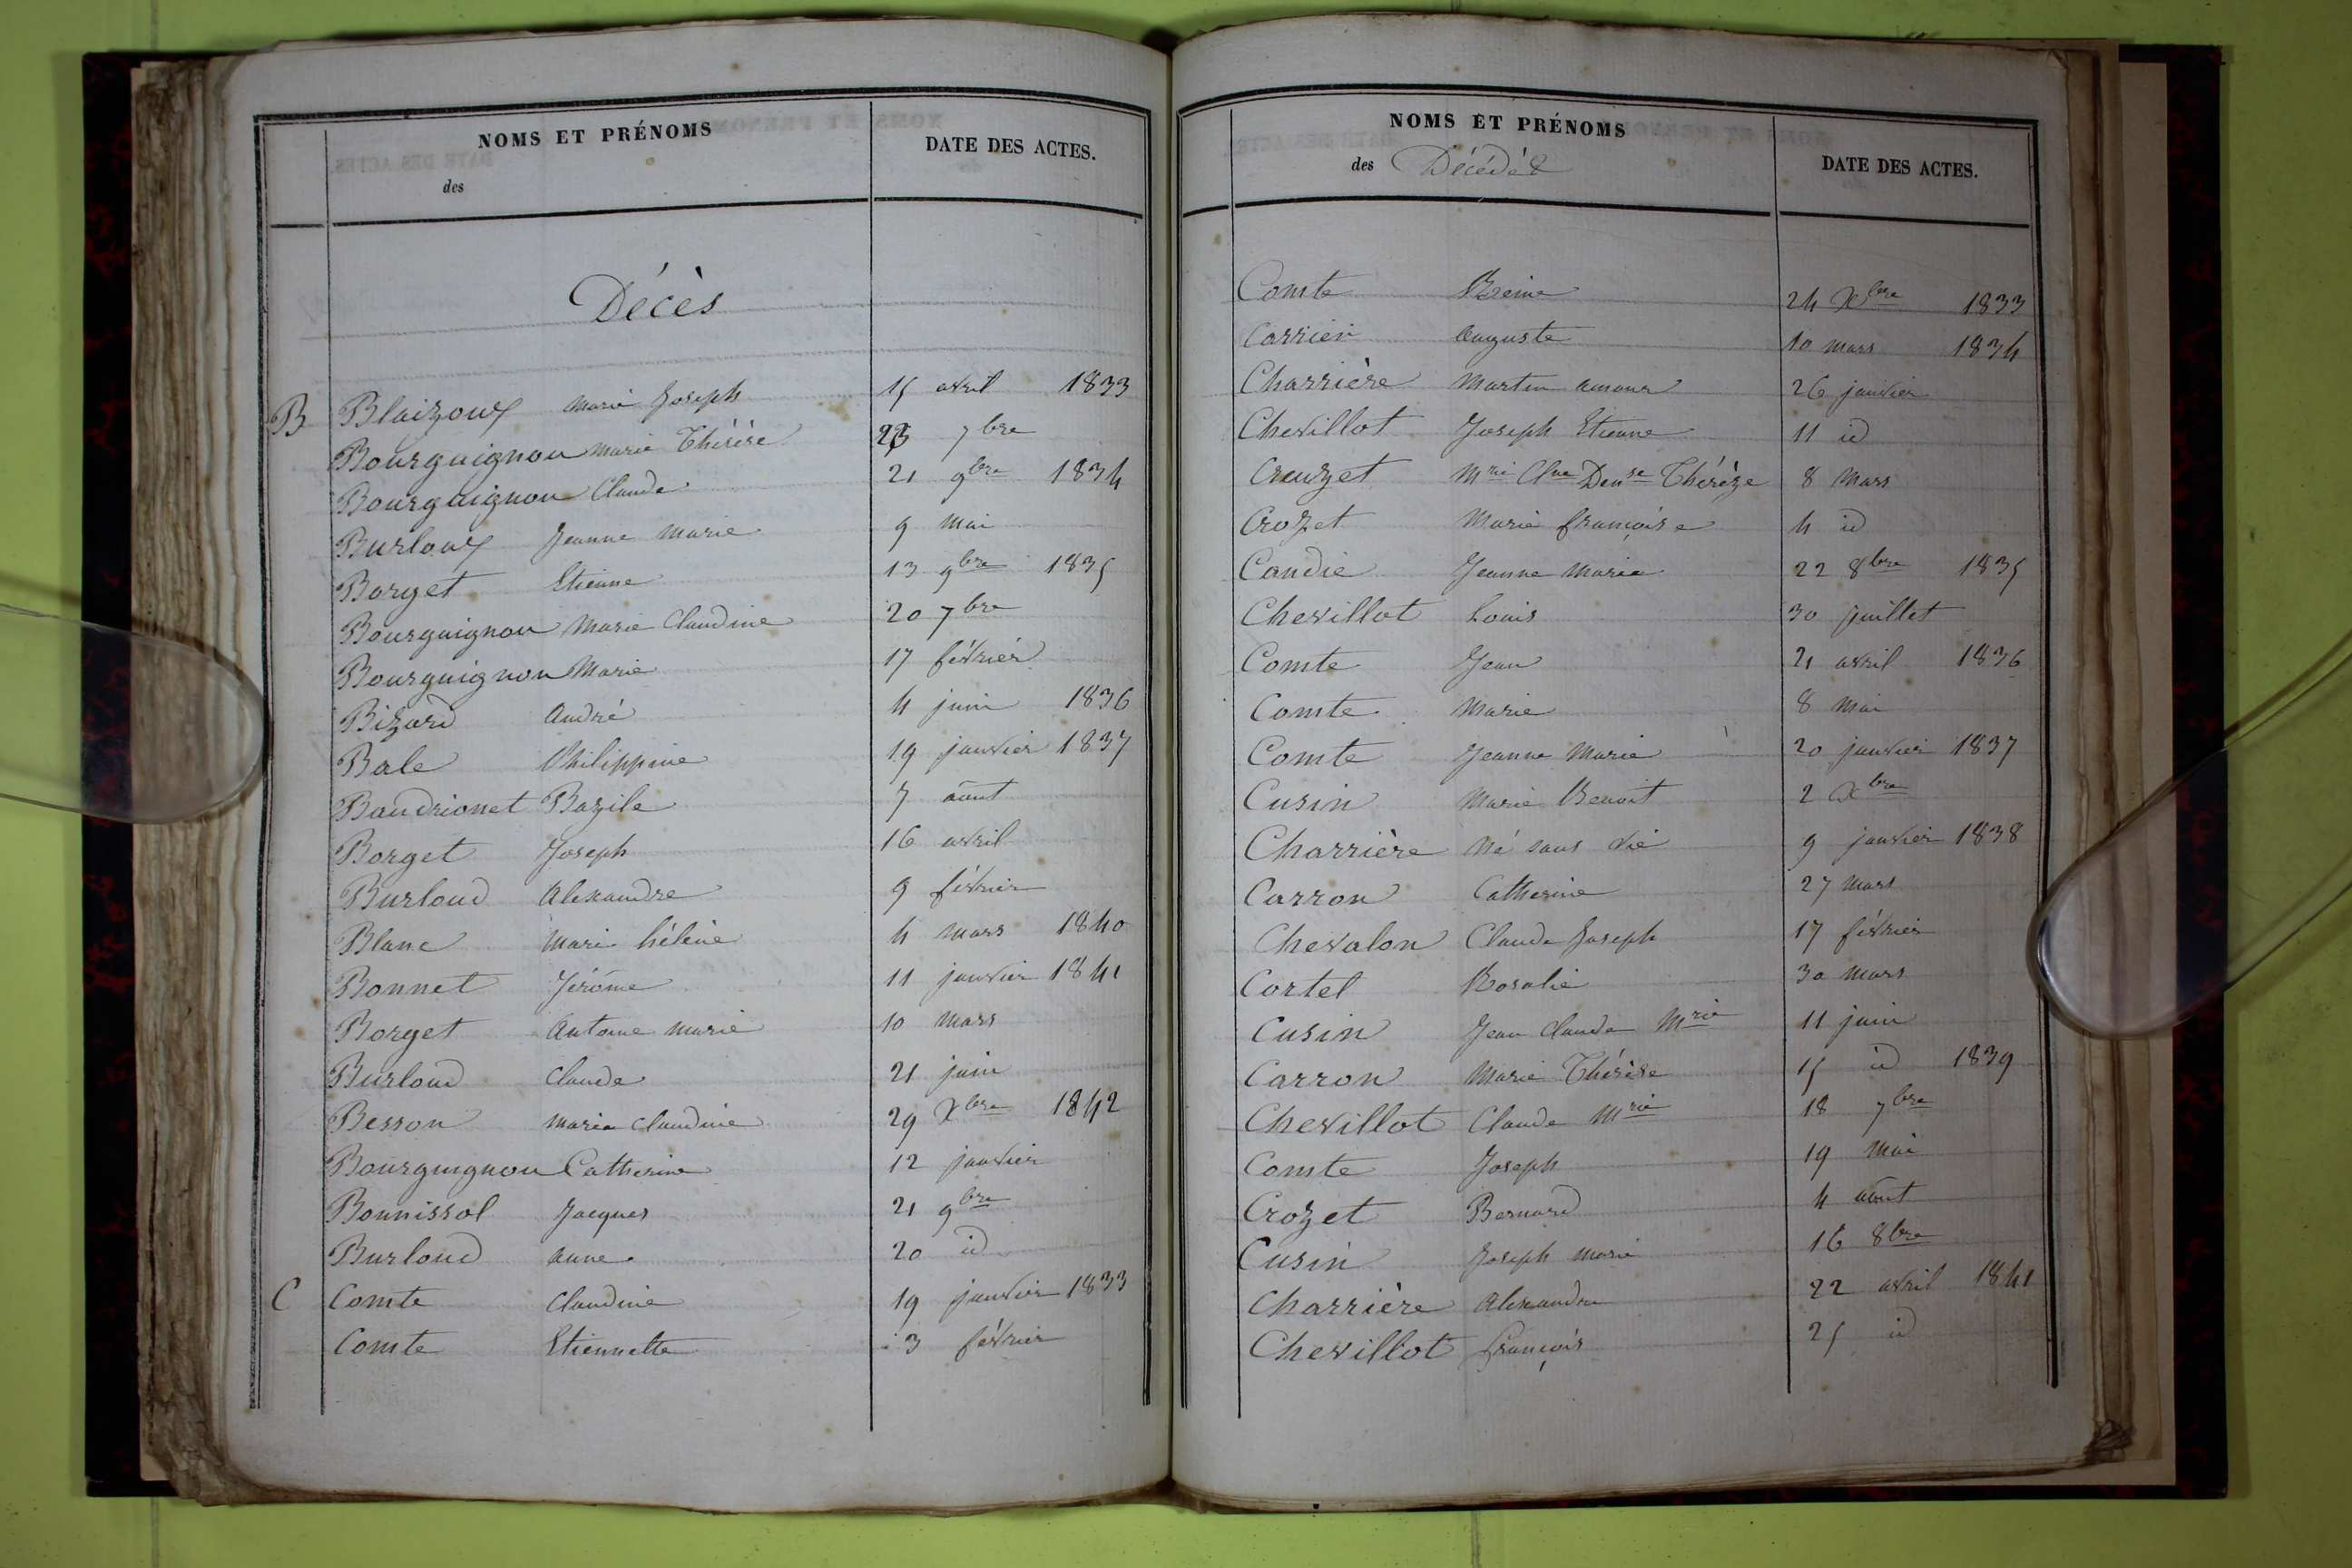 NOMS ET PRÉNOMS
des
DATE DES ACTES.
Décès
B Blaizoux marie Joseph 15 avril 1833
Bourguignon marie Thérèse 23 7bre
Bourguignon Claude 21 9bre 1834
Burloux Jeanne marie 9 mai
Borget Etienne 13 9bre 1835
Bourguignon Marie Claudine 20 7bre
Bourguignon Marie 17 février
Bizard André 4 juin 1836
Bale Philippine 19 janvier 1837
Baudrionet Bazile 7 août
Borget Joseph 16 avril
Burloud Alexandre 9 février
Blanc Marie hélène 4 mars 1840
Bonnet Jérôme 11 janvier 1841
Borget Antoine marie 10 mars
Burloud Claude 21 juin
Besson maria Claudine 29 Xbre 1842
Bourguignon Catherine 12 janvier
Bonnissol Jacques 21 9bre
Burloud anne 20 id
C Comte Claudine 19 janvier 1833
Comte Etiennette 3 février
NOMS ET PRÉNOMS
des Décédés
DATE DES ACTES.
Comte Reine 24 Xbre 1833
Carrier Auguste 10 mars 1834
Charrière Martin amour 26 janvier
Chevillot Joseph Etienne 11 id
Creuzet Mrie Clne Dense Thérèze 8 Mars
Crozet Marie françoise 4 id
Candie Jeanne Marie 22 8bre 1835
Chevillot Louis 30 juillet
Comte Jean 21 avril 1836
Comte Marie 8 mai
Comte Jeanne Marie 20 janvier 1837
Cusin Marie Benoit 2 Xbre
Charrière Né sans vie 9 janvier 1838
Carron Catherine 27 mars
Chevalon Claude Joseph 17 février
Cortel Rosalie 30 mars
Cusin Jean Claude Mrie 11 juin
Carron Marie Thérèse 15 id 1839
Chevillot Claude Mrie 18 7bre
Comte Joseph 19 mai
Crozet Bernard 4 août
Cusin Joseph marie 16 8bre
Charrière Alexandre 22 avril 1841
Chevillot François 25 id